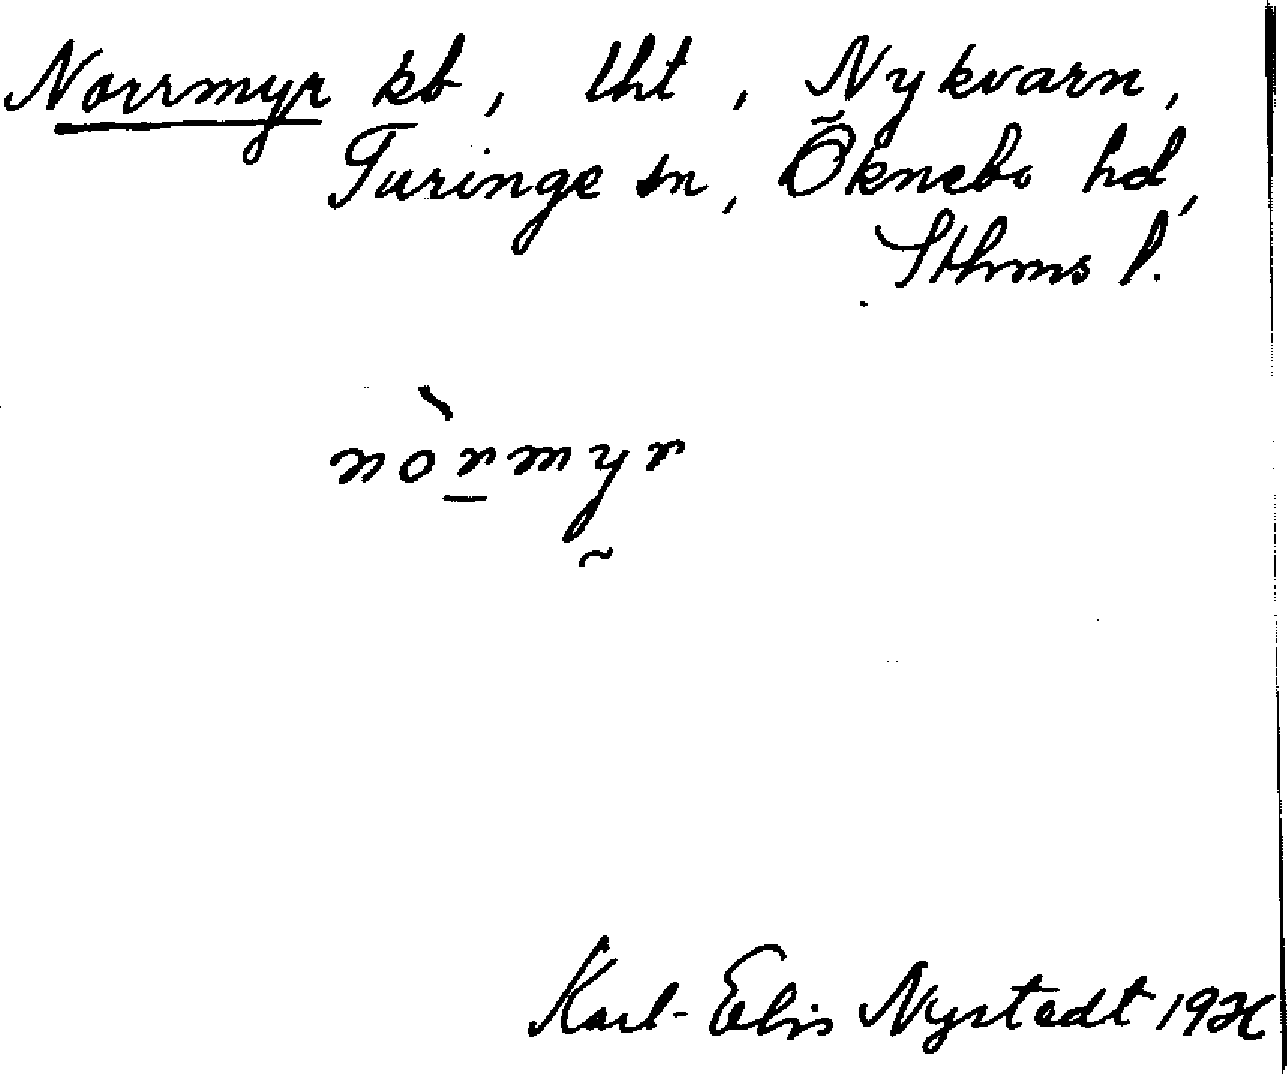 Norrmyr kb, lht, Nykvarn,
Turinge sn, Öknebo hd,
Sthms l.
nòrmyr
Karl-Elis Nystedt